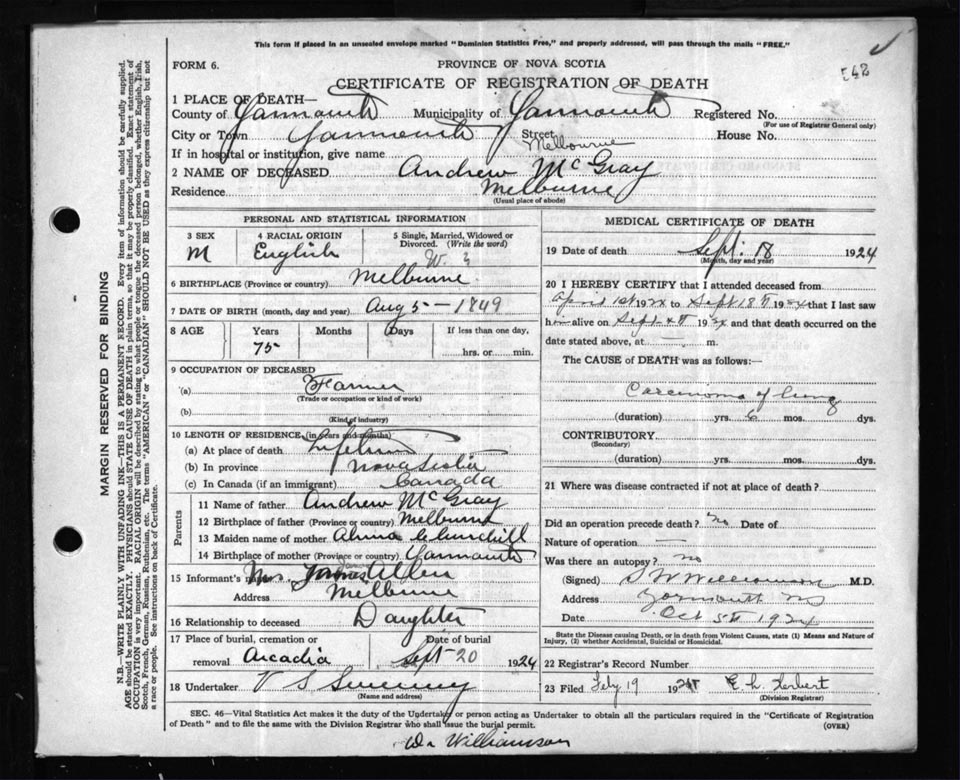 This form if placed in an unsealed envelope marked "Dominion Statistics Free," and properly addressed, will pass through the mails "FREE."
FORM 6.
PROVINCE OF NOVA SCOTIA
548
CERTIFICATE OF REGISTRATION OF DEATH
1 PLACE OF DEATH—
County of Yarmouth Municipality of Yarmouth Registered No.
(For use of Registrar General only)
City or Town Yarmouth Street Melbourne House No.
If in hospital or institution, give name
2 NAME OF DECEASED Andrew McGray
Residence Melburne
(Usual place of abode)
PERSONAL AND STATISTICAL INFORMATION
3 SEX
M
4 RACIAL ORIGIN
English
5 Single, Married, Widowed or Divorced. (Write the word)
W.
6 BIRTHPLACE (Province or country) Melburne
7 DATE OF BIRTH (month, day and year) Aug 5 - 1849
8 AGE Years Months Days If less than one day,
75 hrs. or min.
9 OCCUPATION OF DECEASED
(a) Farmer
(Trade or occupation or kind of work)
(b)
(Kind of industry)
10 LENGTH OF RESIDENCE (in years and months)
(a) At place of death Lifetime
(b) In province Nova Scotia
(c) In Canada (if an immigrant) Canada
Parents
11 Name of father Andrew McGray
12 Birthplace of father (Province or country) Melburne
13 Maiden name of mother Alma Churchill
14 Birthplace of mother (Province or country) Yarmouth
15 Informant's name Mrs. James Allen
Address Melburne
16 Relationship to deceased Daughter
17 Place of burial, cremation or Date of burial
removal Arcadia Sept 20 1924
18 Undertaker V S Sweeney
(Name and address)
MEDICAL CERTIFICATE OF DEATH
19 Date of death Sept. 18 1924
(Month, day and year)
20 I HEREBY CERTIFY that I attended deceased from
April 1st 1924 to Sept 18th 1924 that I last saw
him alive on Sept 4th 1924 and that death occurred on the
date stated above, at — m.
The CAUSE of DEATH was as follows:
Carcinoma of lung
(duration) yrs. 6 mos. dys.
CONTRIBUTORY
(Secondary)
(duration) yrs. mos. dys.
21 Where was disease contracted if not at place of death?
Did an operation precede death? no Date of
Nature of operation —
Was there an autopsy? no
(Signed) S W Williamson M.D.
Address Yarmouth NS
Date Oct 5th 1924
State the Disease causing Death, or in death from Violent Causes, state (1) Means and Nature of
Injury, (2) whether Accidental, Suicidal or Homicidal.
22 Registrar's Record Number
23 Filed Feby 19 192 E. h. Herbert
(Division Registrar)
SEC. 46—Vital Statistics Act makes it the duty of the Undertaker or person acting as Undertaker to obtain all the particulars required in the "Certificate of Registration
of Death" and to file the same with the Division Registrar who shall issue the burial permit. (OVER)
Dr Williamson
MARGIN RESERVED FOR BINDING
N.B.—WRITE PLAINLY WITH UNFADING INK—THIS IS A PERMANENT RECORD. Every item of information should be carefully supplied.
AGE should be stated EXACTLY. PHYSICIANS should STATE CAUSE OF DEATH in plain terms, so that it may be properly classified. Exact statement of
OCCUPATION is very important. RACIAL ORIGIN will be described by stating to what people or tongue the deceased person belonged, whether English, Irish,
Scotch, French, German, Russian, Ruthenian, etc. The terms "AMERICAN" or "CANADIAN" SHOULD NOT BE USED as they express citizenship but not
a race or people. See instructions on back of Certificate.